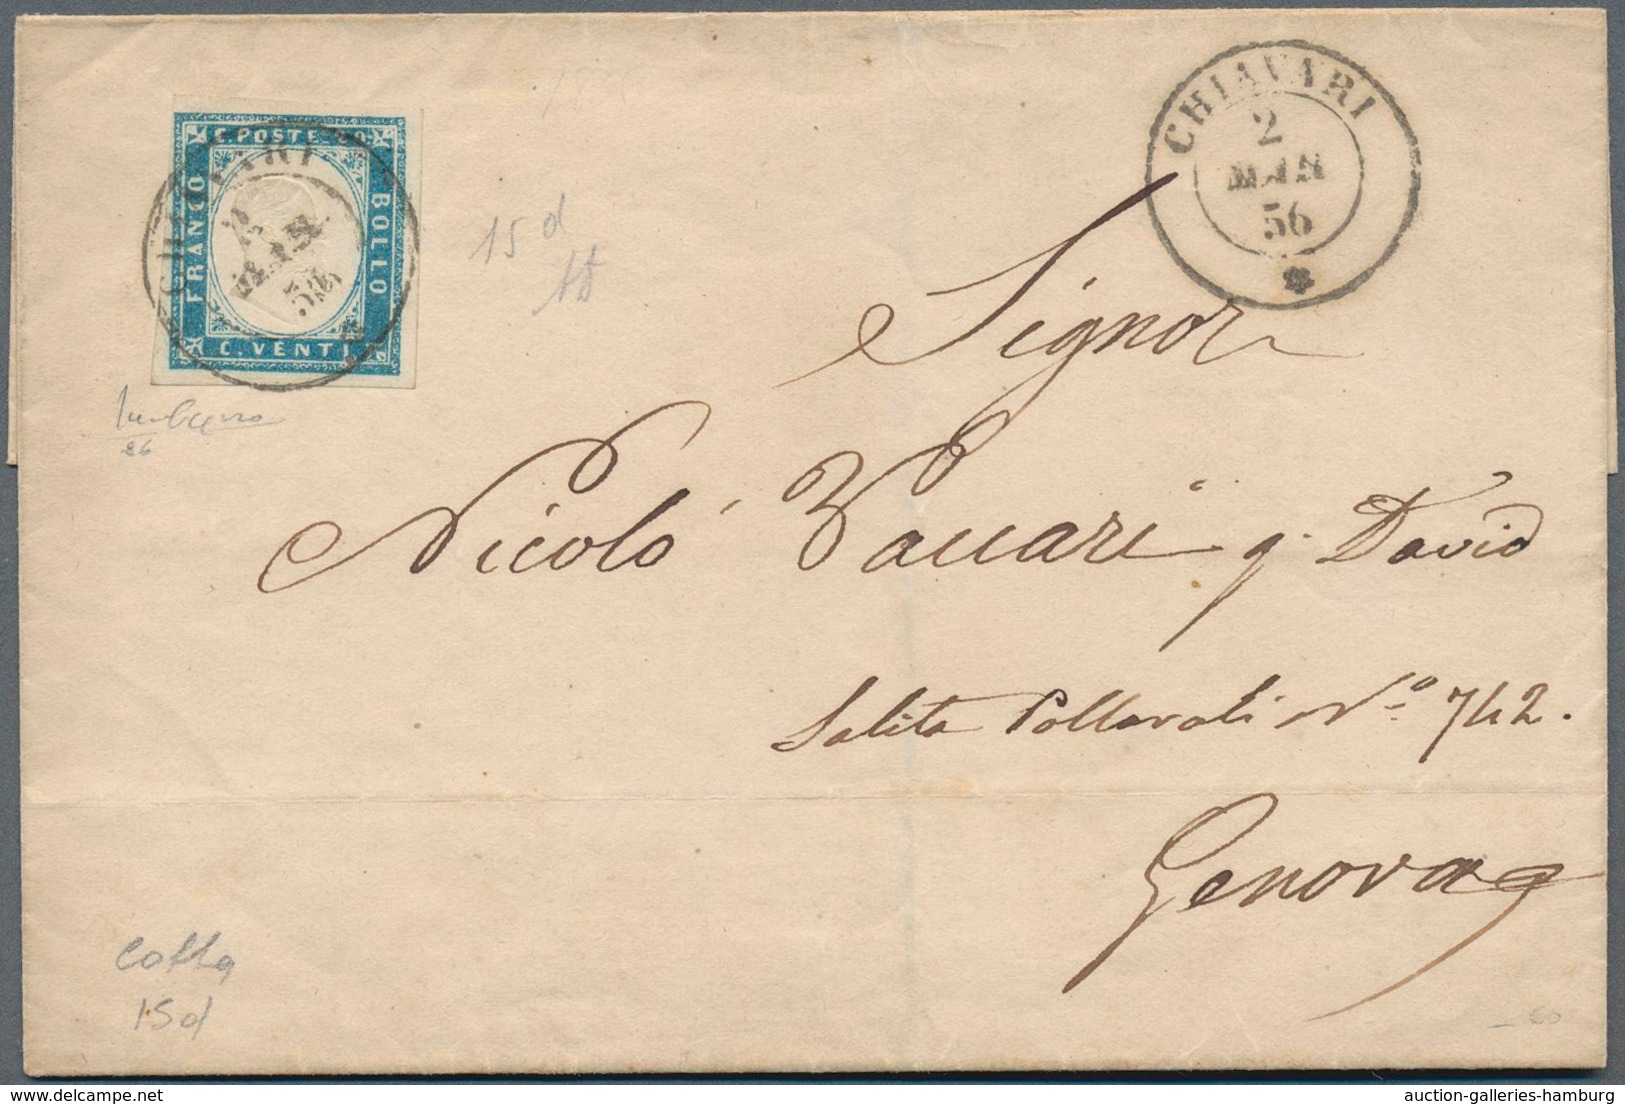 C. POSTE 20
FRANCO
BOLLO
C. VENTI
CHIAVARI
56
CHIAVARI
2
MAR
56
15 d
Signor
Nicoló Vaccari q. David
Salita Pollaroli No. 742.
Genova
86
cotta
15 d
www.delcampe.net
auction-galleries-hamburg